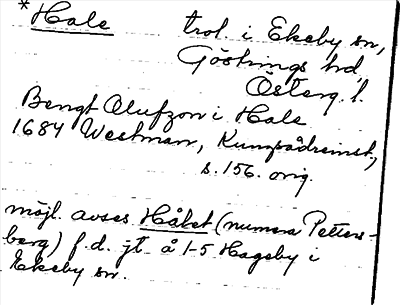 *Hale trol. i Ekeby sn,
Göstrings hd,
Österg. l.
Bengt Olufzon i Hale
1684 Westman,
s. 156. orig.
möjl. avses Hålet (numera Petters-
berg) f.d. jt å 1-5 Hageby i
Ekeby sn.